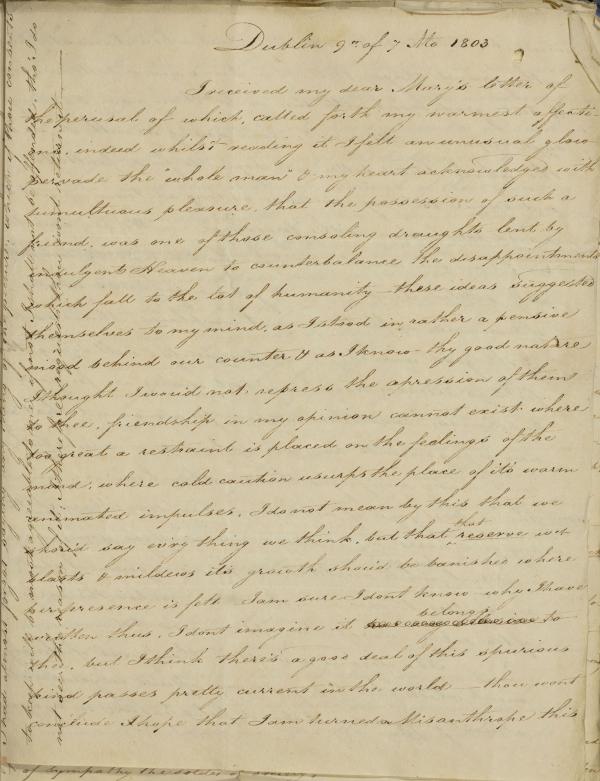 Dublin 9th of 7 Mo 1803
I received my dear Mary's letter of
the perusal of which, called forth my warmest affecti-
ons, indeed whilst reading it I felt an unusual glow
pervade the "whole man" & my heart acknowledged with
tumultuous pleasure, that the possession of such a
friend, was one of those consoling draughts lent by
indulgent Heaven to counterbalance the disappointments
which fall to the lot of humanity these ideas suggested
themselves to my mind, as I stood in rather a pensive
mood behind our counter & as I know thy good nature
I thought I would not repress the expression of them
to thee, friendship in my opinion cannot exist where
too great a restraint is placed on the feelings of the
mind, where cold caution usurps the place of it's warm
animated impulses, I do not mean by this that we
should say every thing we think, but that that reserve wch
blasts & mildews it's growth should be banished where
perference is felt I am sure I dont know why I have
written thus, I dont imagine it belongs to
thee, but I think there's a good deal of this spurious
kind passes pretty current in the world thou wont
conclude I hope that I am turned a Misanthrope this